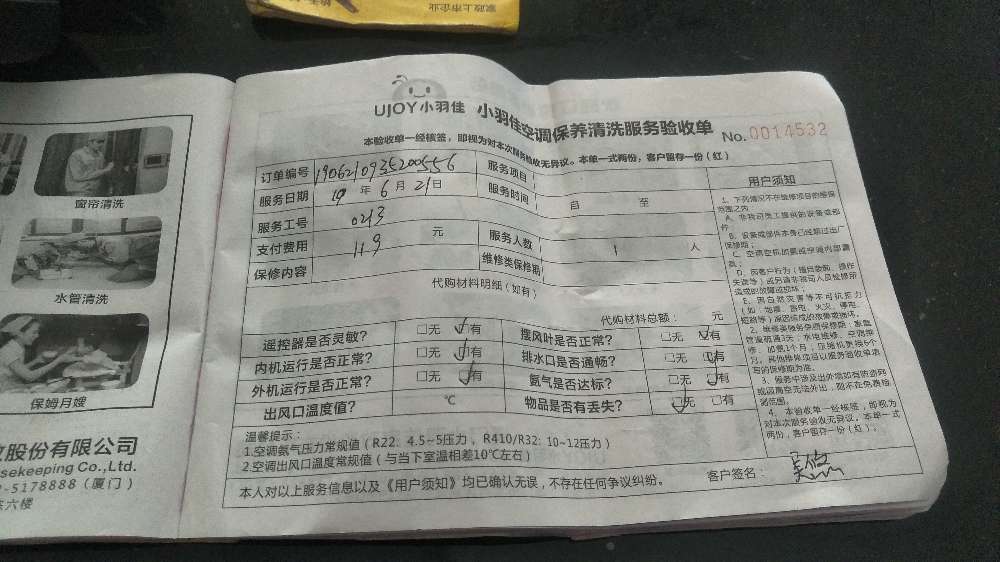 家政上市企业
窗帘清洗
水管清洗
保姆月嫂
股份有限公司
sekeeping Co.,Ltd.
-5178888（厦门）
六楼
UJOY小羽佳 小羽佳空调保养清洗服务验收单 No.0014532
本验收单一经核签，即视为对本次服务验收无异议。本单一式两份，客户留存一份（红）
订单编号 1906210935200556 服务项目
服务日期 19 年 6 月 21 日 服务时间 自 至
服务工号 0213 服务人数 1 人
支付费用 119 元 维修类保修期
保修内容
代购材料明细（如有）
代购材料总额： 元
遥控器是否灵敏？ □无 ☑有 摆风叶是否正常？ □无 ☑有
内机运行是否正常？ □无 ☑有 排水口是否通畅？ □无 ☑有
外机运行是否正常？ □无 ☑有 氨气是否达标？ □无 ☑有
出风口温度值？ ℃ 物品是否有丢失？ ☑无 □有
温馨提示：
1.空调氨气压力常规值（R22：4.5~5压力，R410/R32：10~12压力）
2.空调出风口温度常规值（与当下室温相差10℃左右）
本人对以上服务信息以及《用户须知》均已确认无误，不存在任何争议纠纷。 客户签名：
用户须知
1、下列情况不在维修项目的维保
范围之内
A、非我司员工提供的设备或部
件
B、设备或部件本身已经超过出厂
保修期；
C、空调空机加氨或空调内部漏
氨；
D、因客户行为（错误数据、操作
失误等）或另请非我司人员检修所
造成的故障或损坏；
E、因自然灾害等不可抗拒力
（如：地震、雷电、火灾、停电、
3、服务中涉及出外墙如有防盗网
或超高空无法外出，恕不在免费检
测范围。
4、本验收单一经核签，即视为
对本次服务验收无异议。本单一式
两份，客户留存一份（红）。